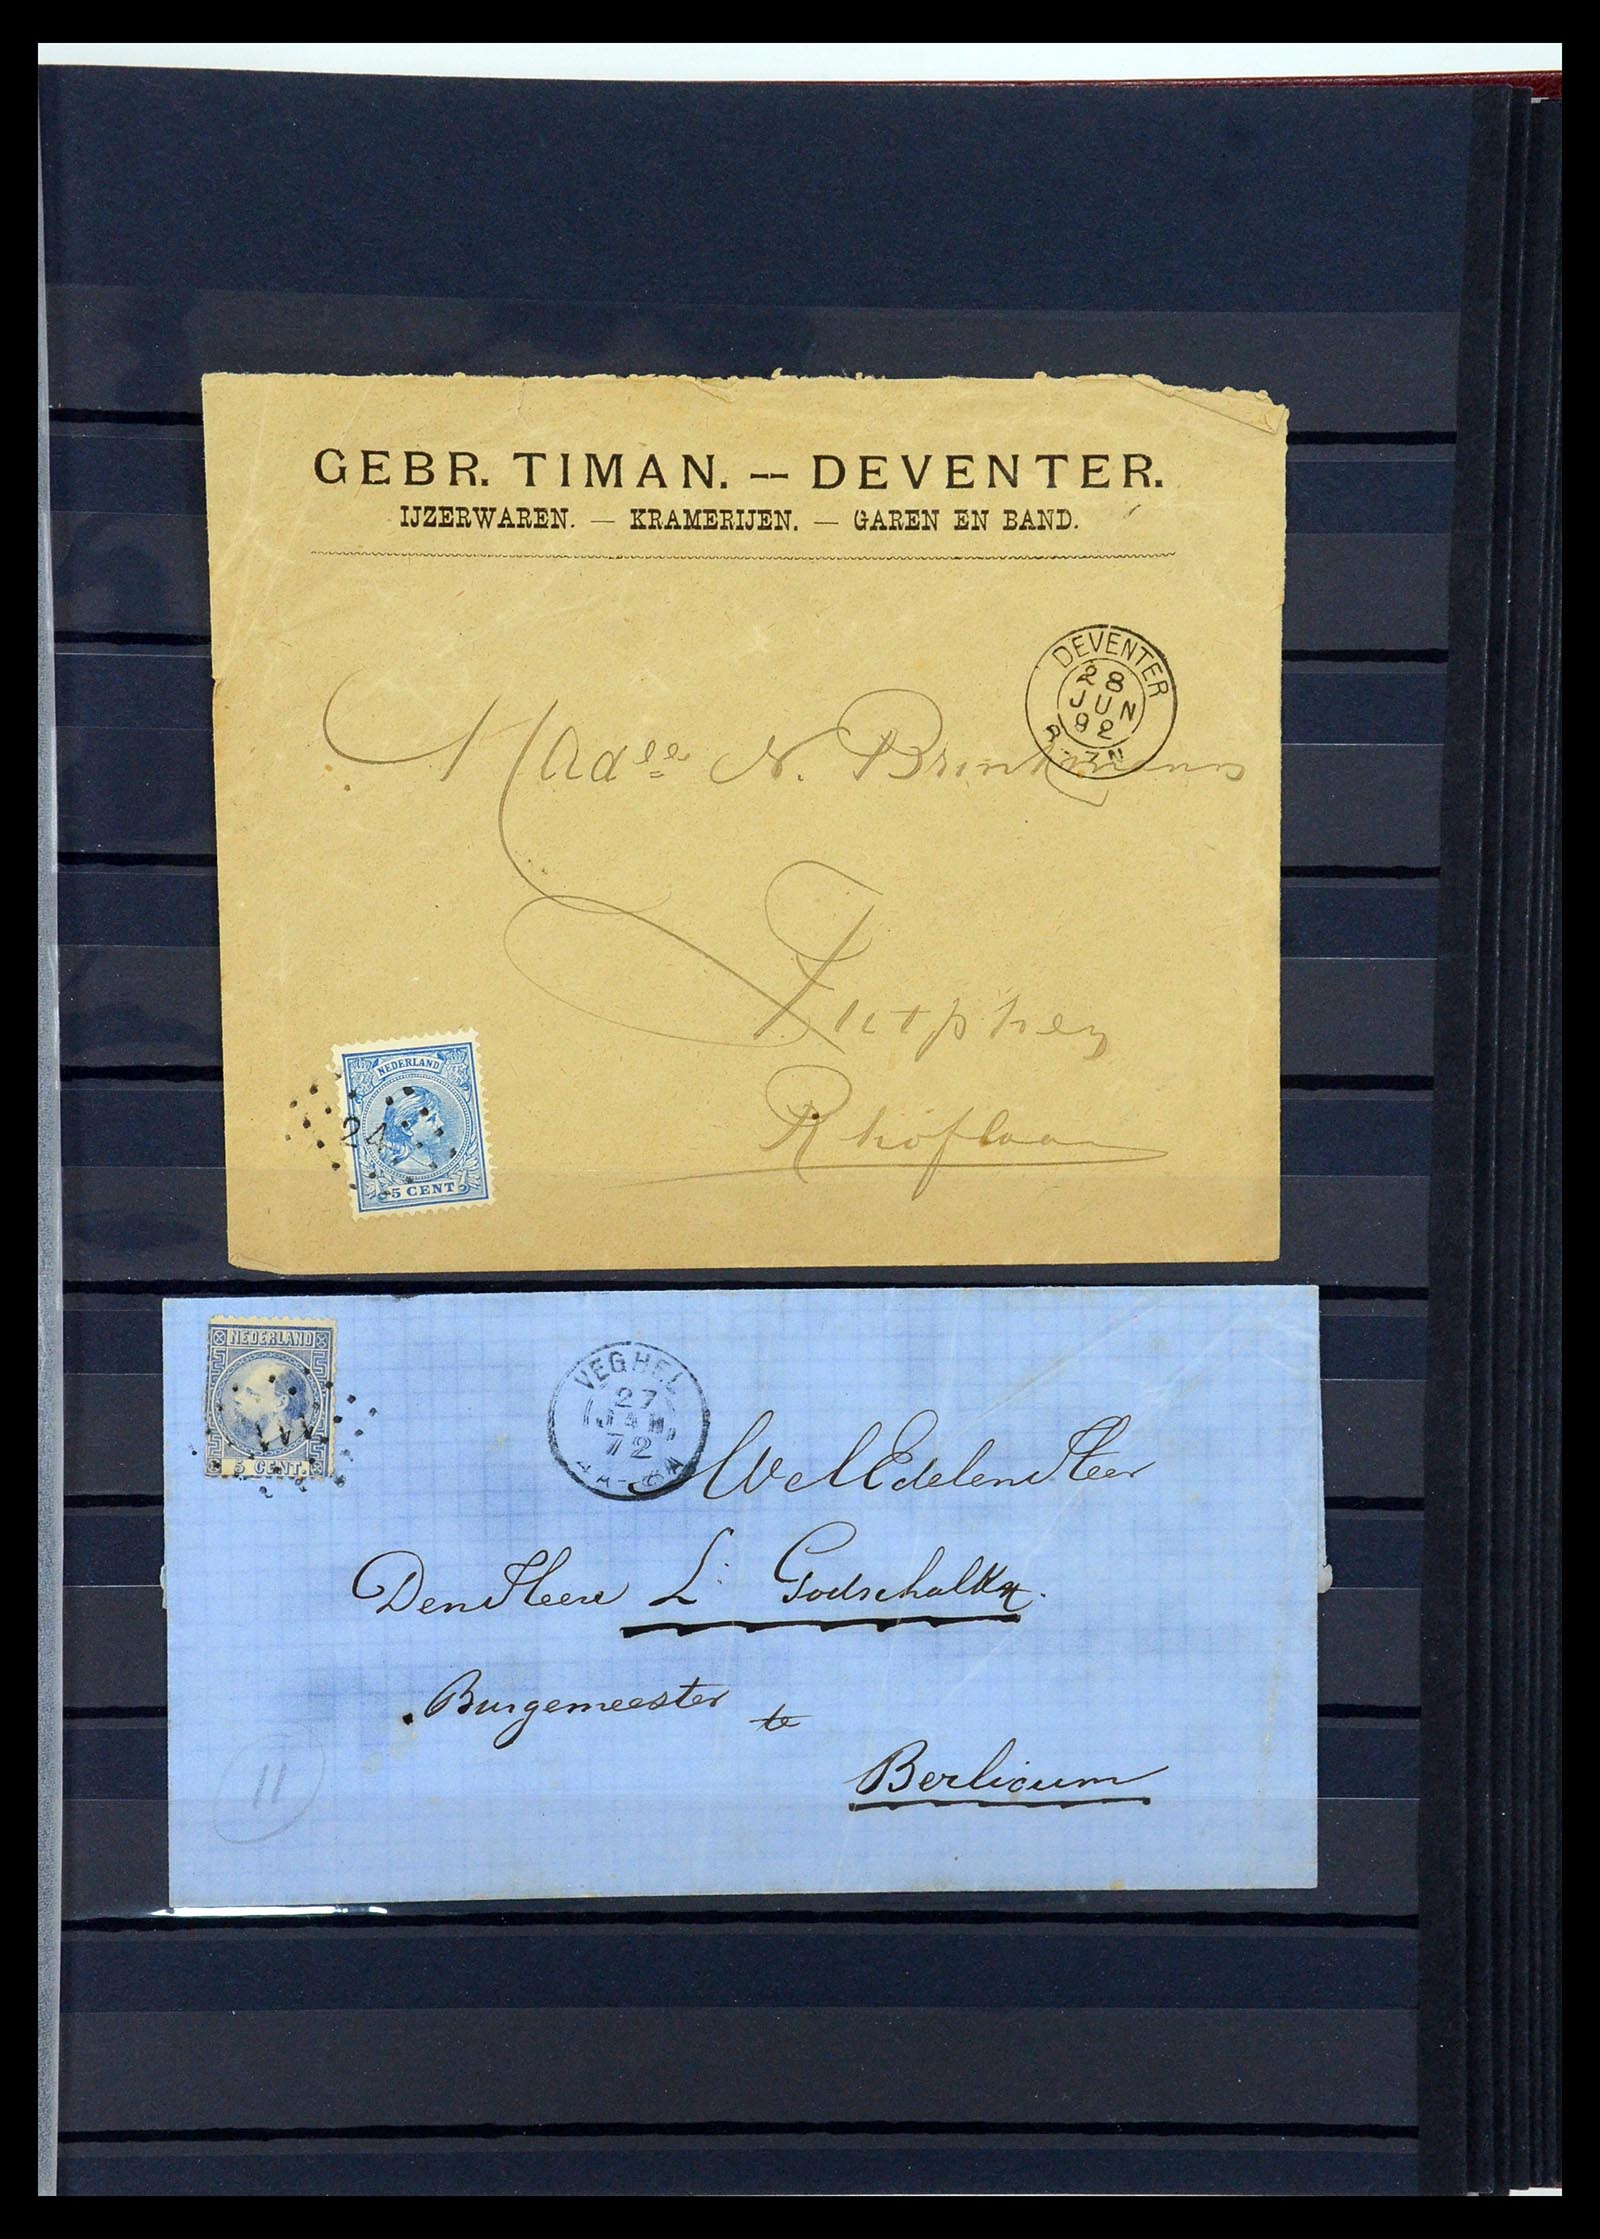 GEBR. TIMAN. — DEVENTER.
IJZERWAREN. — KRAMERIJEN. — GAREN EN BAND.
DEVENTER
28
JUN
92
Madelle N. Brinkmann
Zutphen
NEDERLAND
24
5 CENT
NEDERLAND
5 CENT.
VEGHEL
27
JAN
72
WelEdelen Heer
Den Heere L: Godschalkx.
Burgemeester te
Berlicum
11